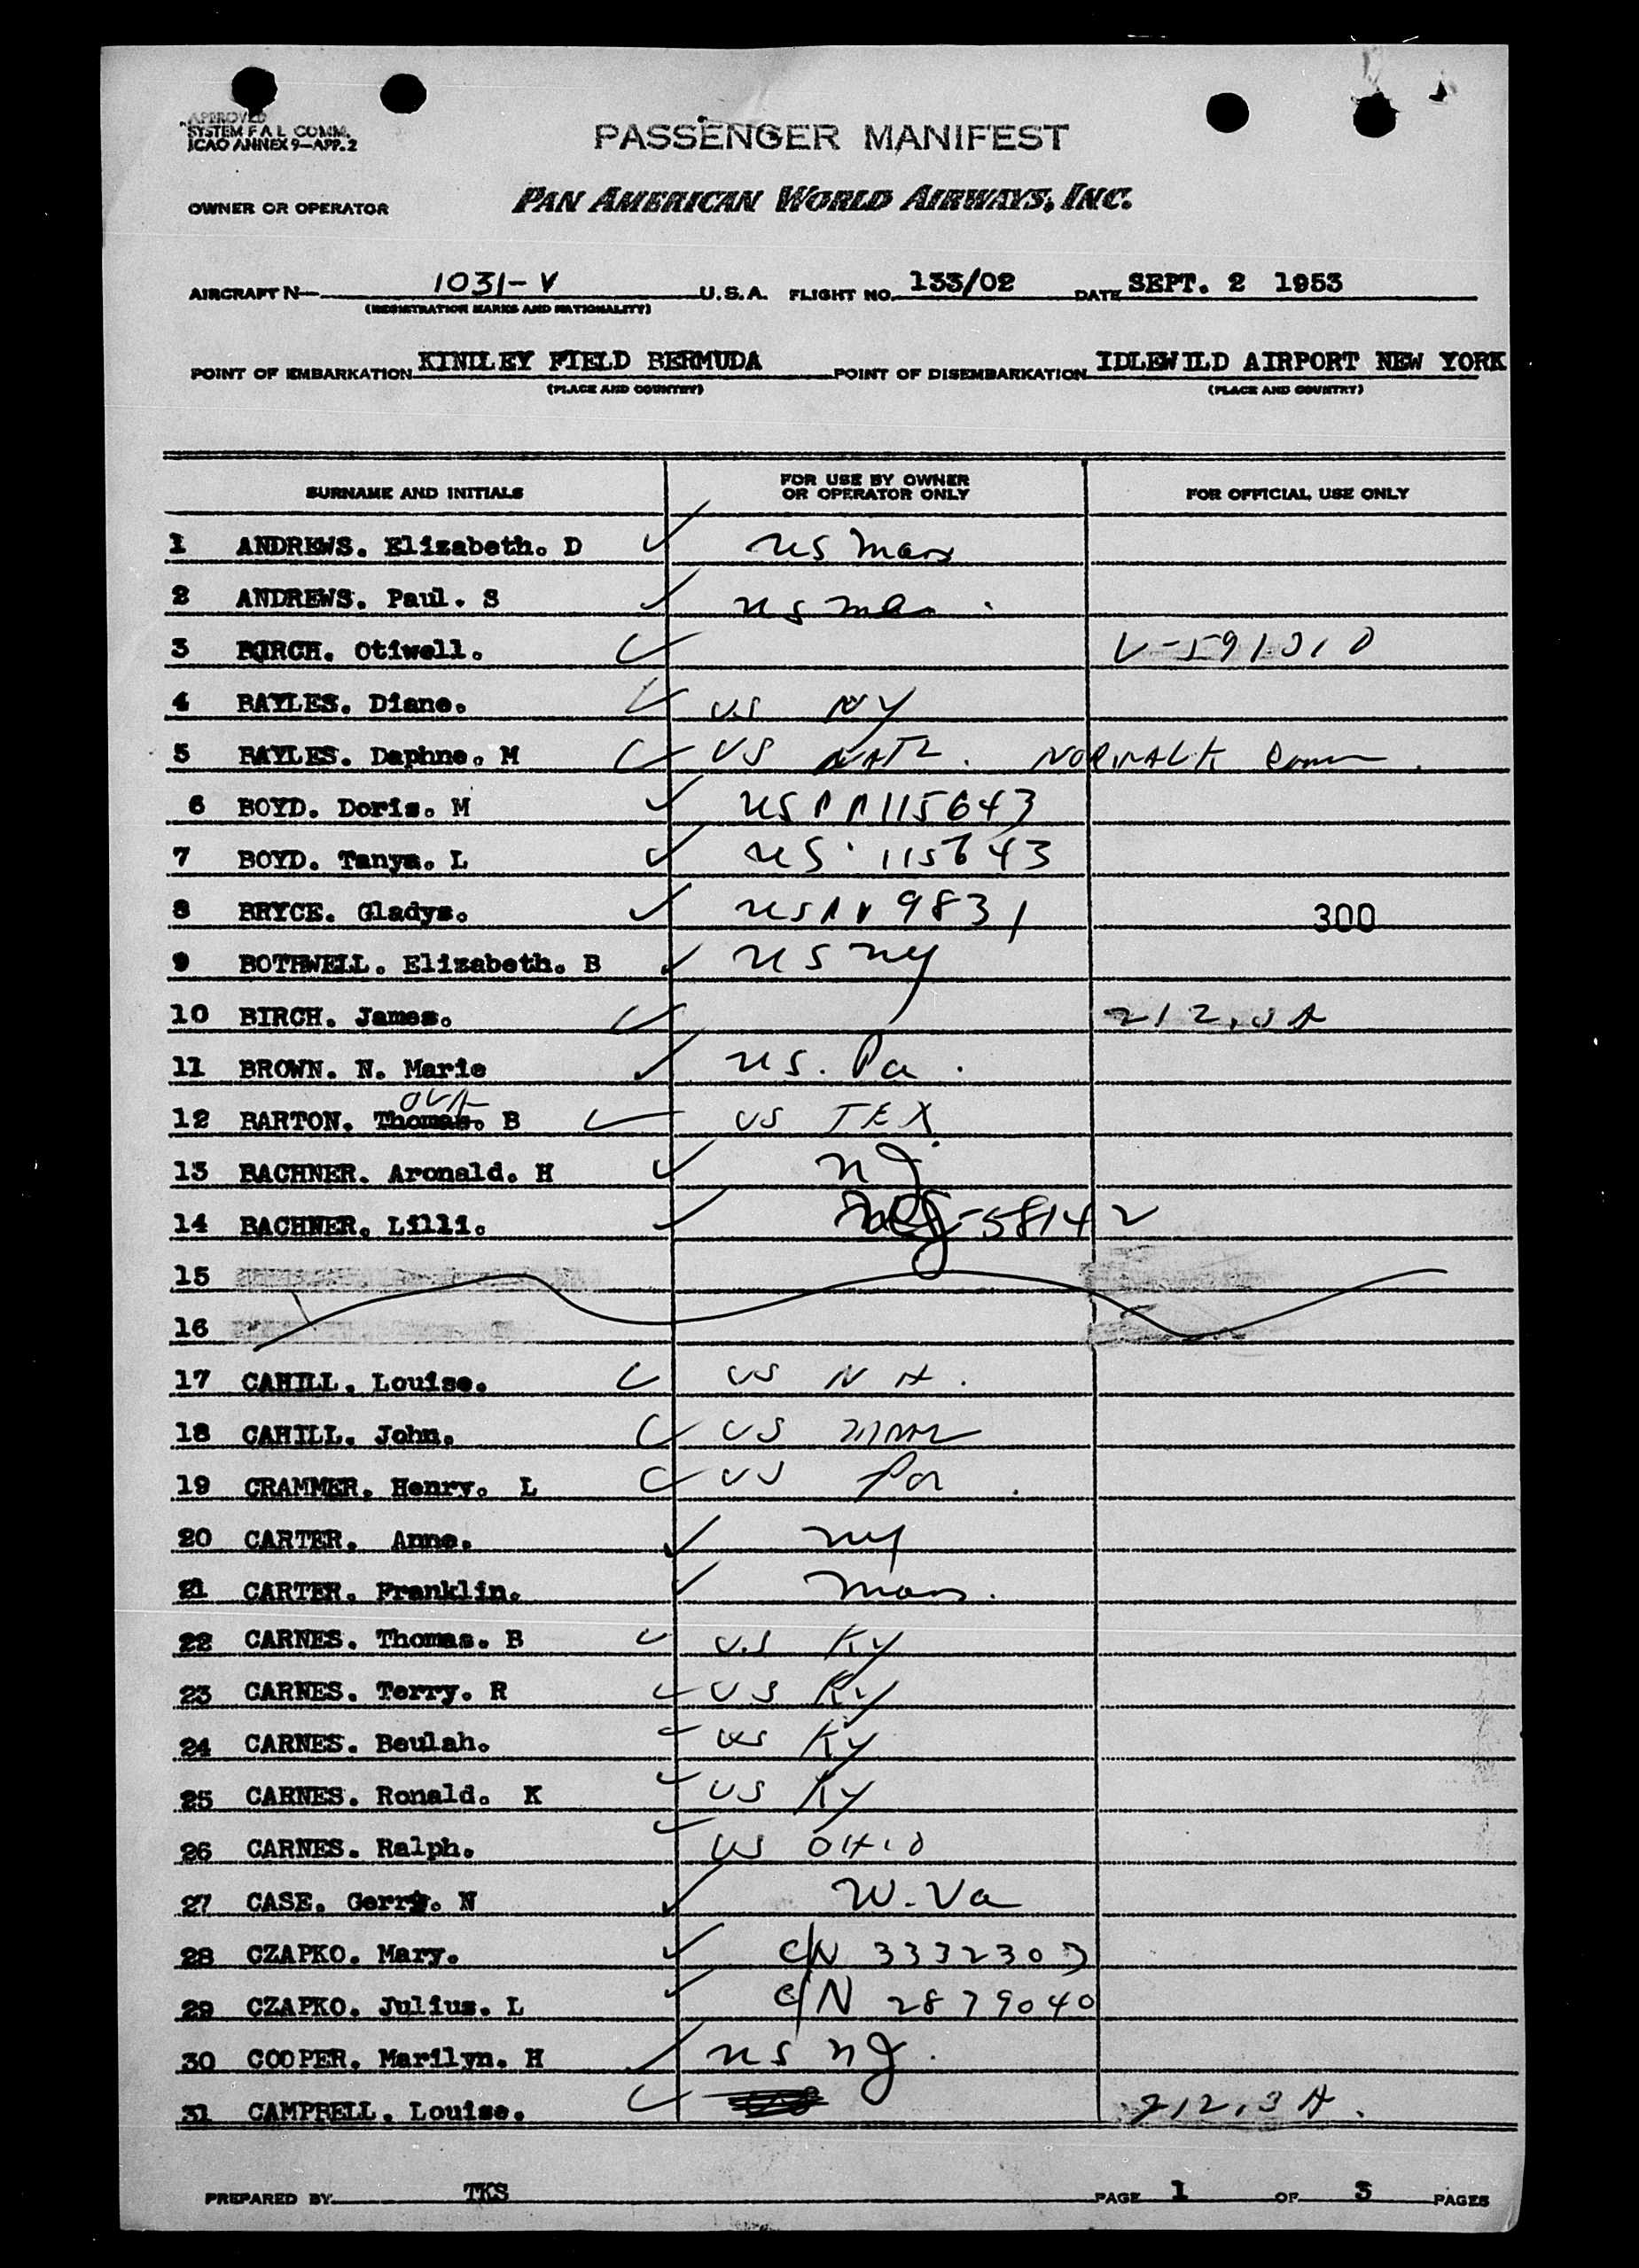 APPROVED
SYSTEM F A L COMM.
ICAO ANNEX 9—APP. 2
PASSENGER MANIFEST
OWNER OR OPERATOR PAN AMERICAN WORLD AIRWAYS, INC.
AIRCRAFT N— 1031-V U.S.A. FLIGHT NO. 133/02 DATE SEPT. 2 1953
(REGISTRATION MARKS AND NATIONALITY)
POINT OF EMBARKATION KINDLEY FIELD BERMUDA POINT OF DISEMBARKATION IDLEWILD AIRPORT NEW YORK
(PLACE AND COUNTRY) (PLACE AND COUNTRY)
SURNAME AND INITIALS FOR USE BY OWNER OR OPERATOR ONLY FOR OFFICIAL USE ONLY
1 ANDREWS. Elizabeth. D ✓ US Mass
2 ANDREWS. Paul. S ✓ US
3 BIRCH. Otiwell. ✓ V-591310
4 BAYLES. Diane. ✓ US NY
5 BAYLES. Daphne. M ✓ US NATZ. NORWALK Conn.
6 BOYD. Doris. M ✓ US PP 115643
7 BOYD. Tanya. L ✓ US 115643
8 BRYCE. Gladys. ✓ US 9831 300
9 BOTHWELL. Elizabeth. B ✓ US NY
10 BIRCH. James. ✓ 212.3A
11 BROWN. N. Marie ✓ US. Pa.
12 BARTON. Thomas. B ✓ US TEX
13 BACHNER. Aronald. H ✓ NJ
14 BACHNER. Lilli. ✓ 58142
15
16
17 CAHILL. Louise. ✓ US N H.
18 CAHILL. John. ✓ US
19 CRAMMER. Henry. L ✓ US Pa.
20 CARTER. Anne. ✓ NY
21 CARTER. Franklin. ✓ Mass.
22 CARNES. Thomas. B ✓ US KY
23 CARNES. Terry. R ✓ US KY
24 CARNES. Beulah. ✓ US KY
25 CARNES. Ronald. K ✓ US KY
26 CARNES. Ralph. ✓ US OHIO
27 CASE. Gerry. N ✓ W. Va
28 CZAPKO. Mary. ✓ C/N 3332303
29 CZAPKO. Julius. L ✓ C/N 2879040
30 COOPER. Marilyn. H ✓ US NJ.
31 CAMPBELL. Louise. ✓ 212.3A.
PREPARED BY TKS PAGE 1 OF 3 PAGES